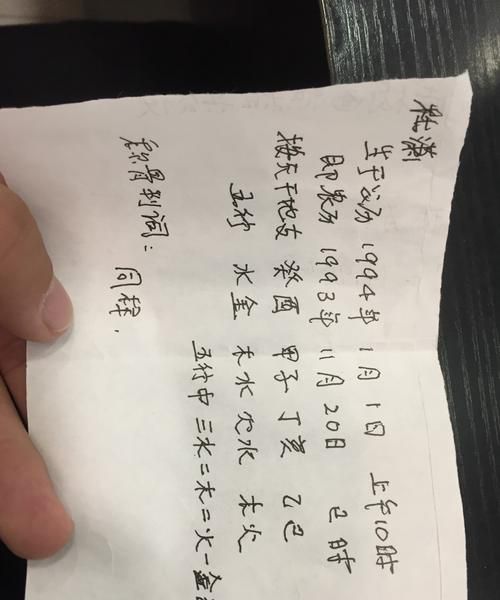 杜潇
生于公历 1994年 1月 1日 上午10时
即农历 1993年 11月 20日 巳时
按天干地支 癸酉 甲子 丁亥 乙巳
五行 水金 木水 火水 木火
五行中 三水二木二火一金
称骨判词：
同样.